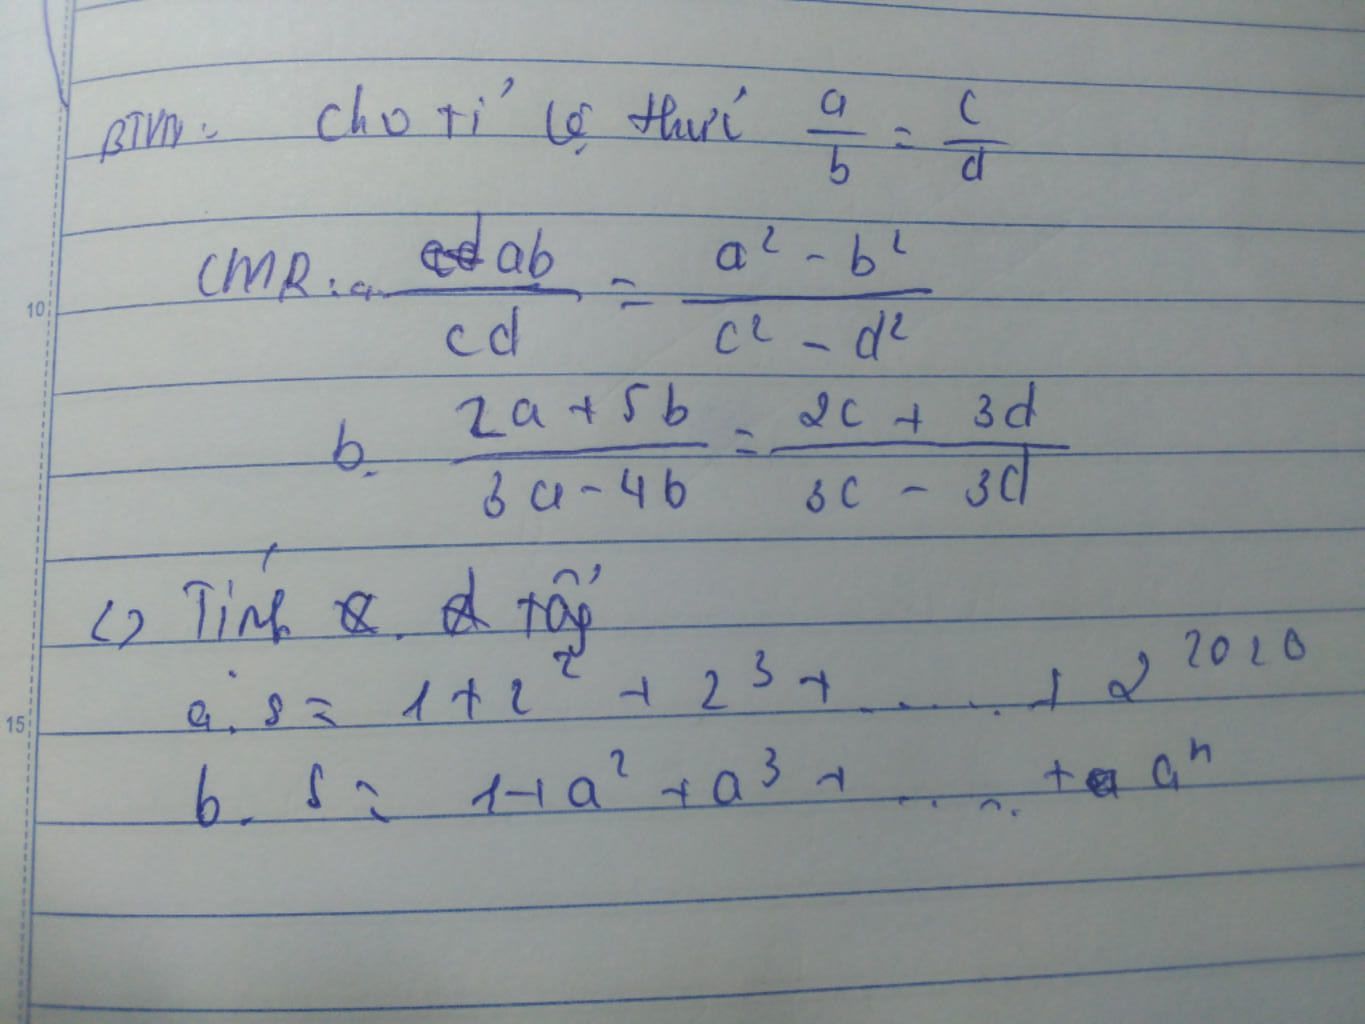 BTVN: Cho tỉ lệ thức a/b = c/d
CMR: a. ab/cd = a² - b²/c² - d²
b. 2a + 5b/3a - 4b = 2c + 3d/3c - 3d
c) Tính
a. S = 1 + 2² + 2³ + ..... + 2²⁰²⁰
b. S = 1 + a² + a³ + ..... + aⁿ
10
15